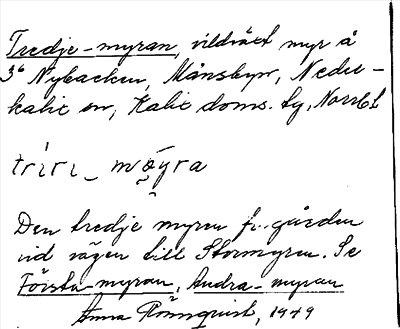 Tredje-myran, vildväxt myr å
3⁶ Nybacken, Månsbyn, Neder-
kalix sn, Kalix doms. lg, Norrb. l
tríri_ mǫ́yra
Den tredje myren fr. gården
vid vägen till Stormyren. Se
Första-myran, Andra-myran
Anna Rönnquist, 1949